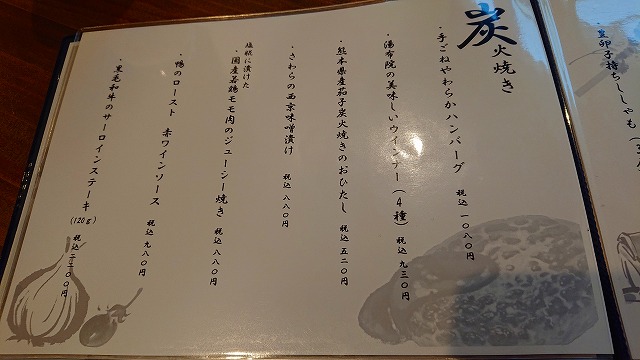 炭火焼き
・手ごねやわらかハンバーグ 税込 一〇八〇円
・湯布院の美味しいウインナー(4種) 税込 九三〇円
・熊本県産茄子炭火焼きのおひたし 税込 五二〇円
・さわらの西京味噌漬け 税込 八八〇円
塩糀に漬けた
・国産若鶏モモ肉のジューシー焼き 税込 八八〇円
・鴨のロースト 赤ワインソース 税込 九八〇円
・黒毛和牛のサーロインステーキ(120g) 税込 二二〇〇円